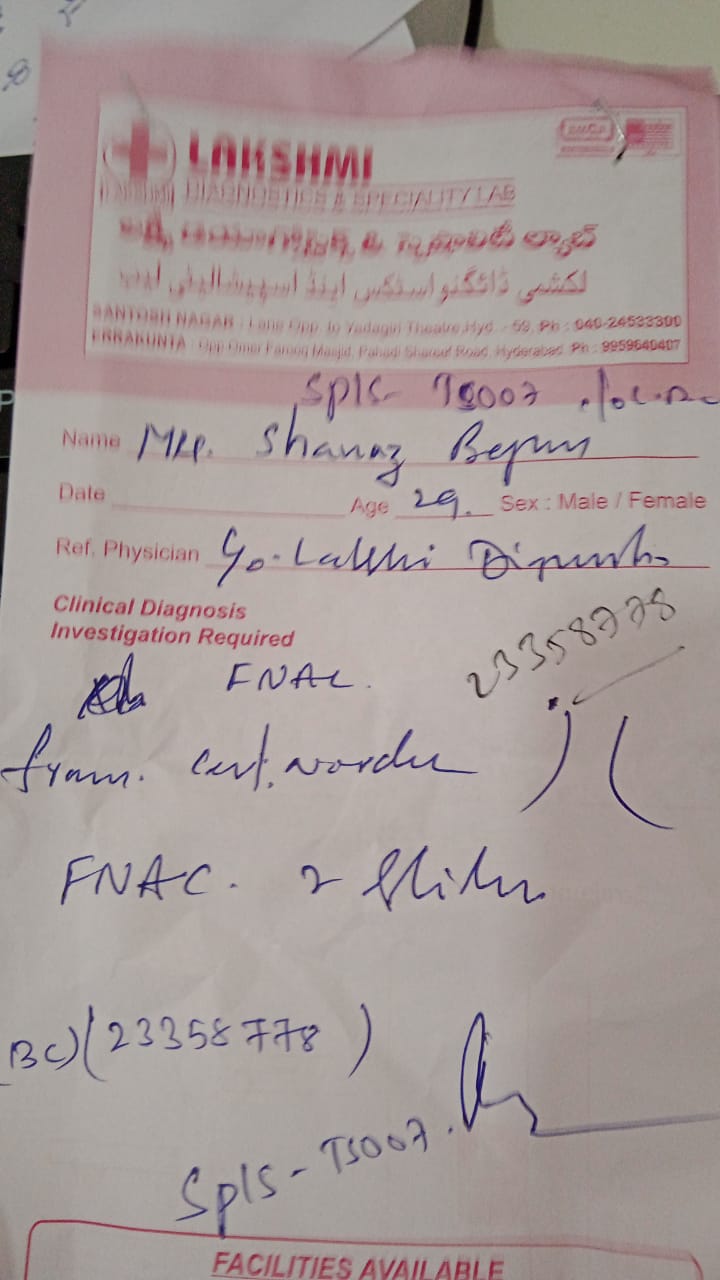 LAKSHMI
DIAGNOSTICS & SPECIALITY LAB
لکشمی ڈائگنواسٹکس اینڈ اسپیشالیٹی لیب
SANTOSH NAGAR : Lane Opp. to Yadagiri Theatre, Hyd. - 59, Ph : 040-24533300
ERRAKUNTA : Opp Omer Farooq Masjid, Pahadi Shareef Road, Hyderabad. Ph : 9959640407
Spls- TS007
Name Mrs. Shanaz Begum
Date Age 29. Sex : Male / Female
Ref. Physician Lakshmi
Clinical Diagnosis
Investigation Required
23358778
FNAC.
from.
FNAC. 2 Slides
BC) (23358778)
Spls - TS007.
FACILITIES AVAILABLE